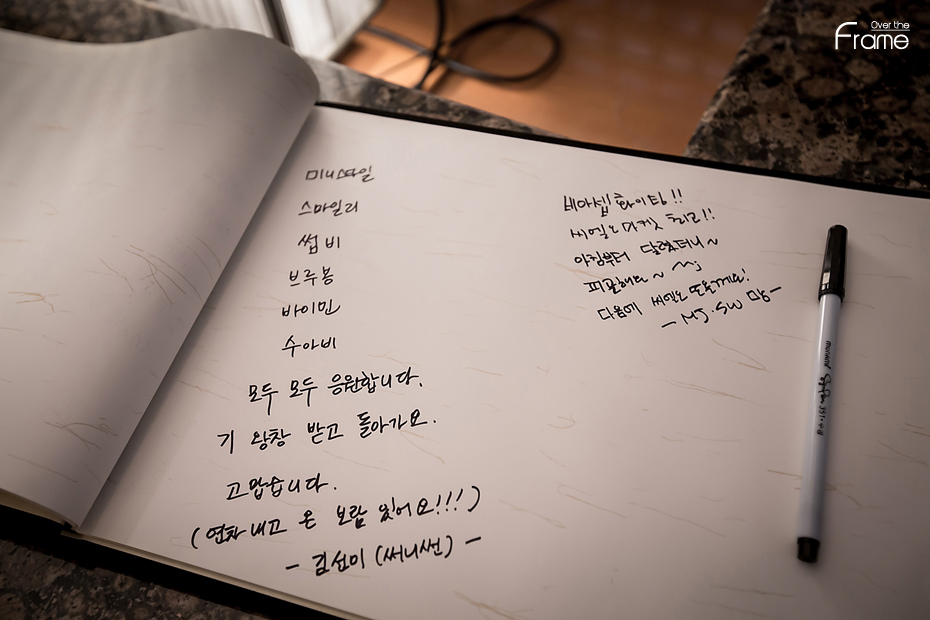 Over the
Frame
미니스타일
스마일리
썸비
브루봉
바이민
수아비
모두 모두 응원합니다.
기 왕창 받고 돌아가요.
고맙습니다.
(연차내고 온 보람 있어요!!!)
- 김선미 (써니썬) -
화이팅!!
최고!!
아침부터 달렸더니~
피곤해요~
다음에 또올게요!
- MJ.SW 맘 -
monami